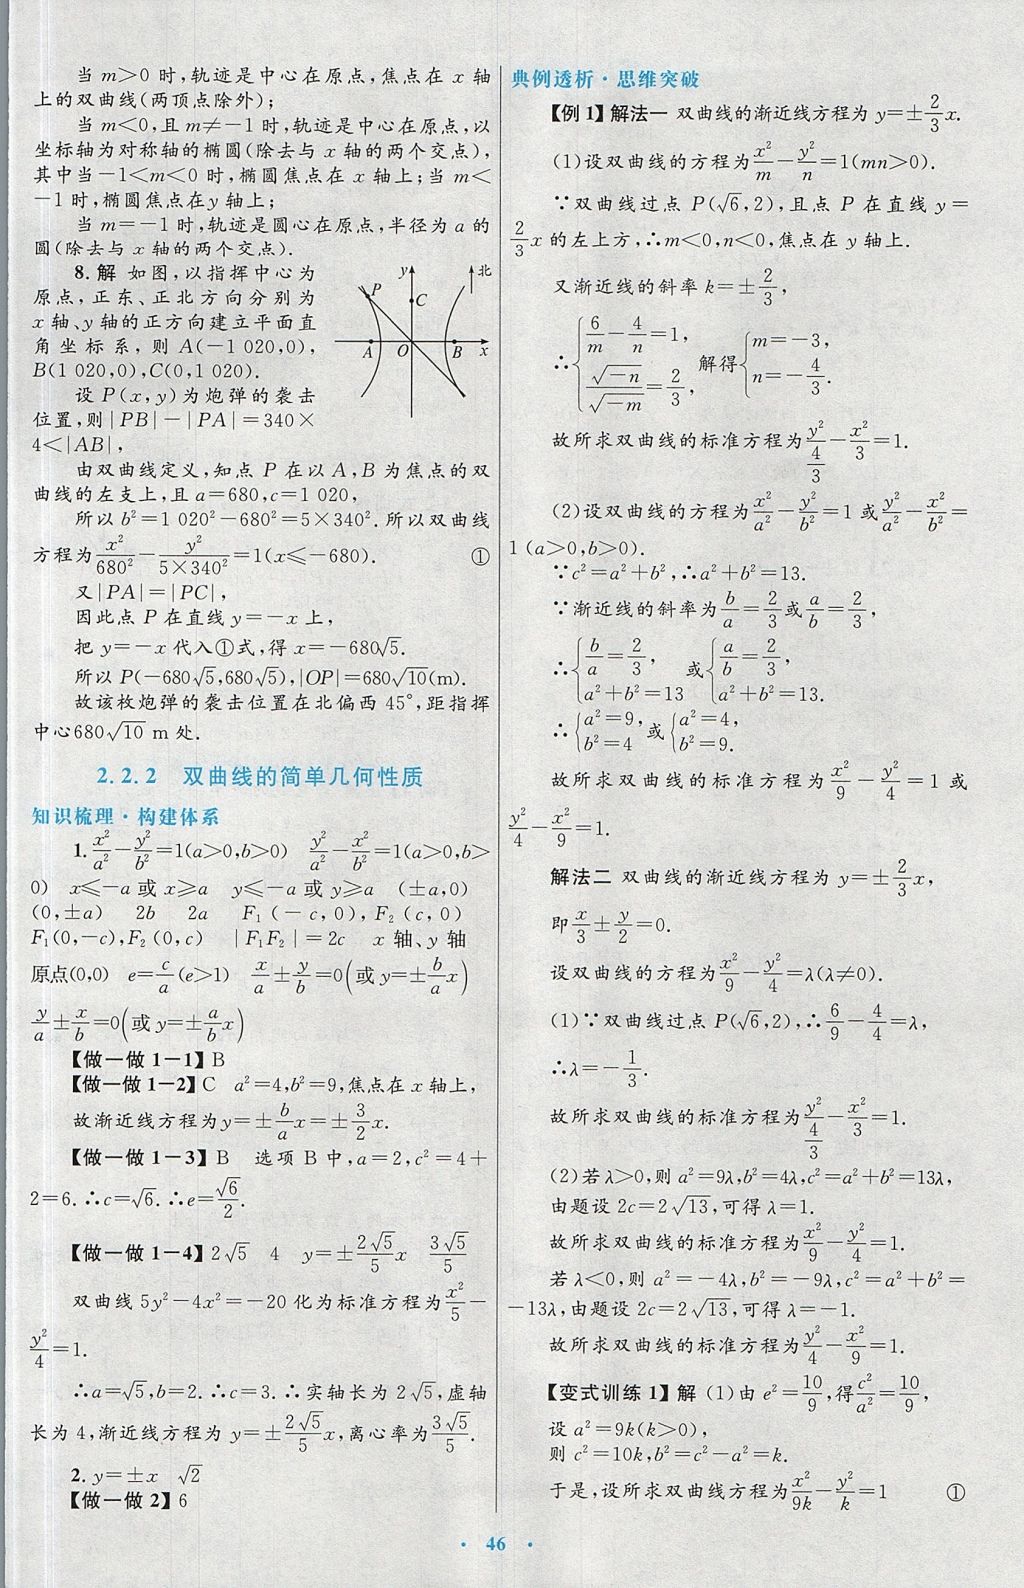 当 m>0 时,轨迹是中心在原点,焦点在 x 轴
上的双曲线(两顶点除外);
当 m<0,且 m≠-1 时,轨迹是中心在原点,以
坐标轴为对称轴的椭圆(除去与 x 轴的两个交点),
其中当-1<m<0 时,椭圆焦点在 x 轴上;当 m<
-1时,椭圆焦点在y 轴上;
当 m=-1 时,轨迹是圆心在原点,半径为 a 的
圆(除去与 x 轴的两个交点).
8.解 如图,以指挥中心为
原点,正东、正北方向分别为
x 轴、y 轴的正方向建立平面直
角坐标系,则 A(-1 020,0),
B(1 020,0),C(0,1 020).
y 北 P C A O B x
设 P(x,y)为炮弹的袭击
位置,则|PB|-|PA|=340×
4<|AB|,
由双曲线定义,知点 P 在以 A,B 为焦点的双
曲线的左支上,且 a=680,c=1 020,
所以 b²=1 020²-680²=5×340².所以双曲线
方程为x²/680²-y²/(5×340²)=1(x≤-680). ①
又|PA|=|PC|,
因此点 P 在直线 y=-x 上,
把 y=-x 代入①式,得 x=-680√5.
所以 P(-680√5,680√5),|OP|=680√10(m).
故该枚炮弹的袭击位置在北偏西 45°,距指挥
中心680√10 m 处.
2.2.2 双曲线的简单几何性质
知识梳理·构建体系
1.x²/a²-y²/b²=1(a>0,b>0) y²/a²-x²/b²=1(a>0,b>
0) x≤-a 或 x≥a y≤-a 或 y≥a (±a,0)
(0,±a) 2b 2a F₁(-c,0),F₂(c,0)
F₁(0,-c),F₂(0,c) |F₁F₂|=2c x 轴、y 轴
原点(0,0) e=c/a(e>1) x/a±y/b=0(或y=±b/a x)
y/a±x/b=0(或y=±a/b x)
【做一做 1-1】B
【做一做 1-2】C a²=4,b²=9,焦点在 x 轴上,
故渐近线方程为y=±b/a x=±3/2 x.
【做一做 1-3】B 选项 B 中,a=2,c²=4+
2=6.∴c=√6.∴e=√6/2.
【做一做 1-4】2√5 4 y=±2√5/5 x 3√5/5
双曲线 5y²-4x²=-20 化为标准方程为x²/5-
y²/4=1.
∴a=√5,b=2.∴c=3.∴实轴长为 2√5,虚轴
长为 4,渐近线方程为 y=±2√5/5 x,离心率为3√5/5.
2.y=±x √2
【做一做 2】6
典例透析·思维突破
【例 1】解法一 双曲线的渐近线方程为 y=±2/3 x.
(1)设双曲线的方程为x²/m-y²/n=1(mn>0).
∵双曲线过点 P(√6,2),且点 P 在直线 y=
2/3 x 的左上方,∴m<0,n<0,焦点在 y 轴上.
又渐近线的斜率 k=±2/3,
∴{6/m-4/n=1, √-n/√-m=2/3, 解得{m=-3, n=-4/3.
故所求双曲线的标准方程为y²/(4/3)-x²/3=1.
(2)设双曲线的方程为x²/a²-y²/b²=1 或y²/a²-x²/b²=
1 (a>0,b>0).
∵c²=a²+b²,∴a²+b²=13.
∵渐近线的斜率为b/a=2/3或a/b=2/3,
∴{b/a=2/3, a²+b²=13 或{a/b=2/3, a²+b²=13.
∴{a²=9, b²=4 或{a²=4, b²=9.
故所求双曲线的标准方程为x²/9-y²/4=1 或
y²/4-x²/9=1.
解法二 双曲线的渐近线方程为 y=±2/3 x,
即x/3±y/2=0.
设双曲线的方程为x²/9-y²/4=λ(λ≠0).
(1)∵双曲线过点 P(√6,2),∴6/9-4/4=λ,
∴λ=-1/3.
故所求双曲线的标准方程为y²/(4/3)-x²/3=1.
(2)若λ>0,则 a²=9λ,b²=4λ,c²=a²+b²=13λ,
由题设 2c=2√13,可得 λ=1.
故所求双曲线的标准方程为x²/9-y²/4=1.
若 λ<0,则 a²=-4λ,b²=-9λ,c²=a²+b²=
-13λ,由题设 2c=2√13,可得 λ=-1.
故所求双曲线的标准方程为y²/4-x²/9=1.
【变式训练 1】解 (1)由 e²=10/9,得c²/a²=10/9,
设 a²=9k(k>0),
则 c²=10k,b²=c²-a²=k.
于是,设所求双曲线方程为x²/9k-y²/k=1 ①
· 46 ·